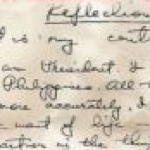 Reflection
is my
an President I
Philippines. All
more accurately, I
want of life
partner in the thing